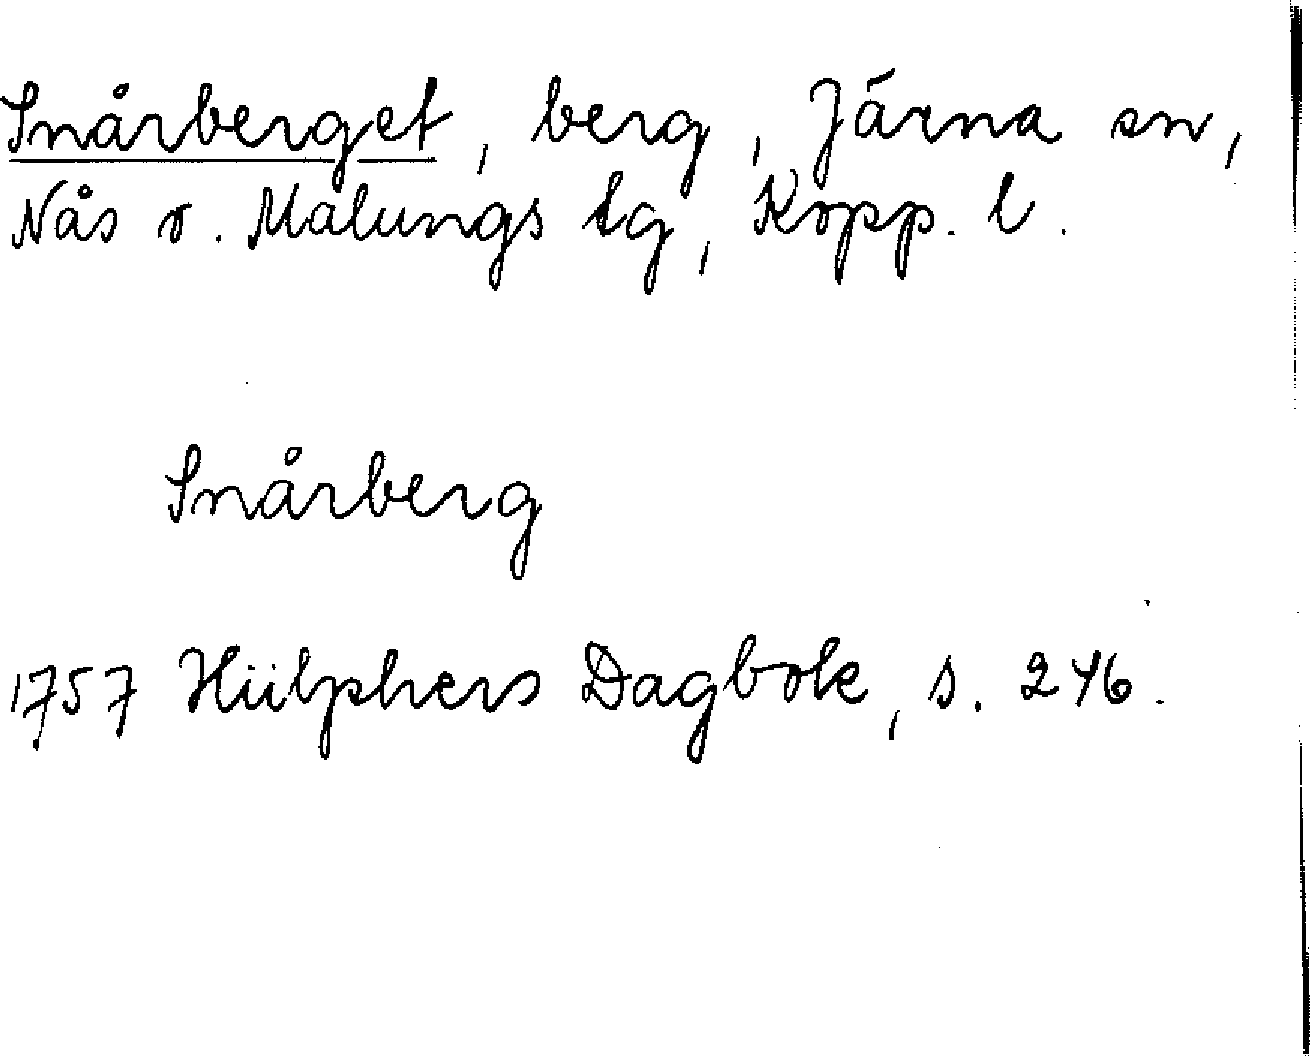 Snårberget, berg, Järna sn,
Nås o. Malungs tg, Kopp. l.
Snårberg
1757 Hülphers Dagbok, s. 246.